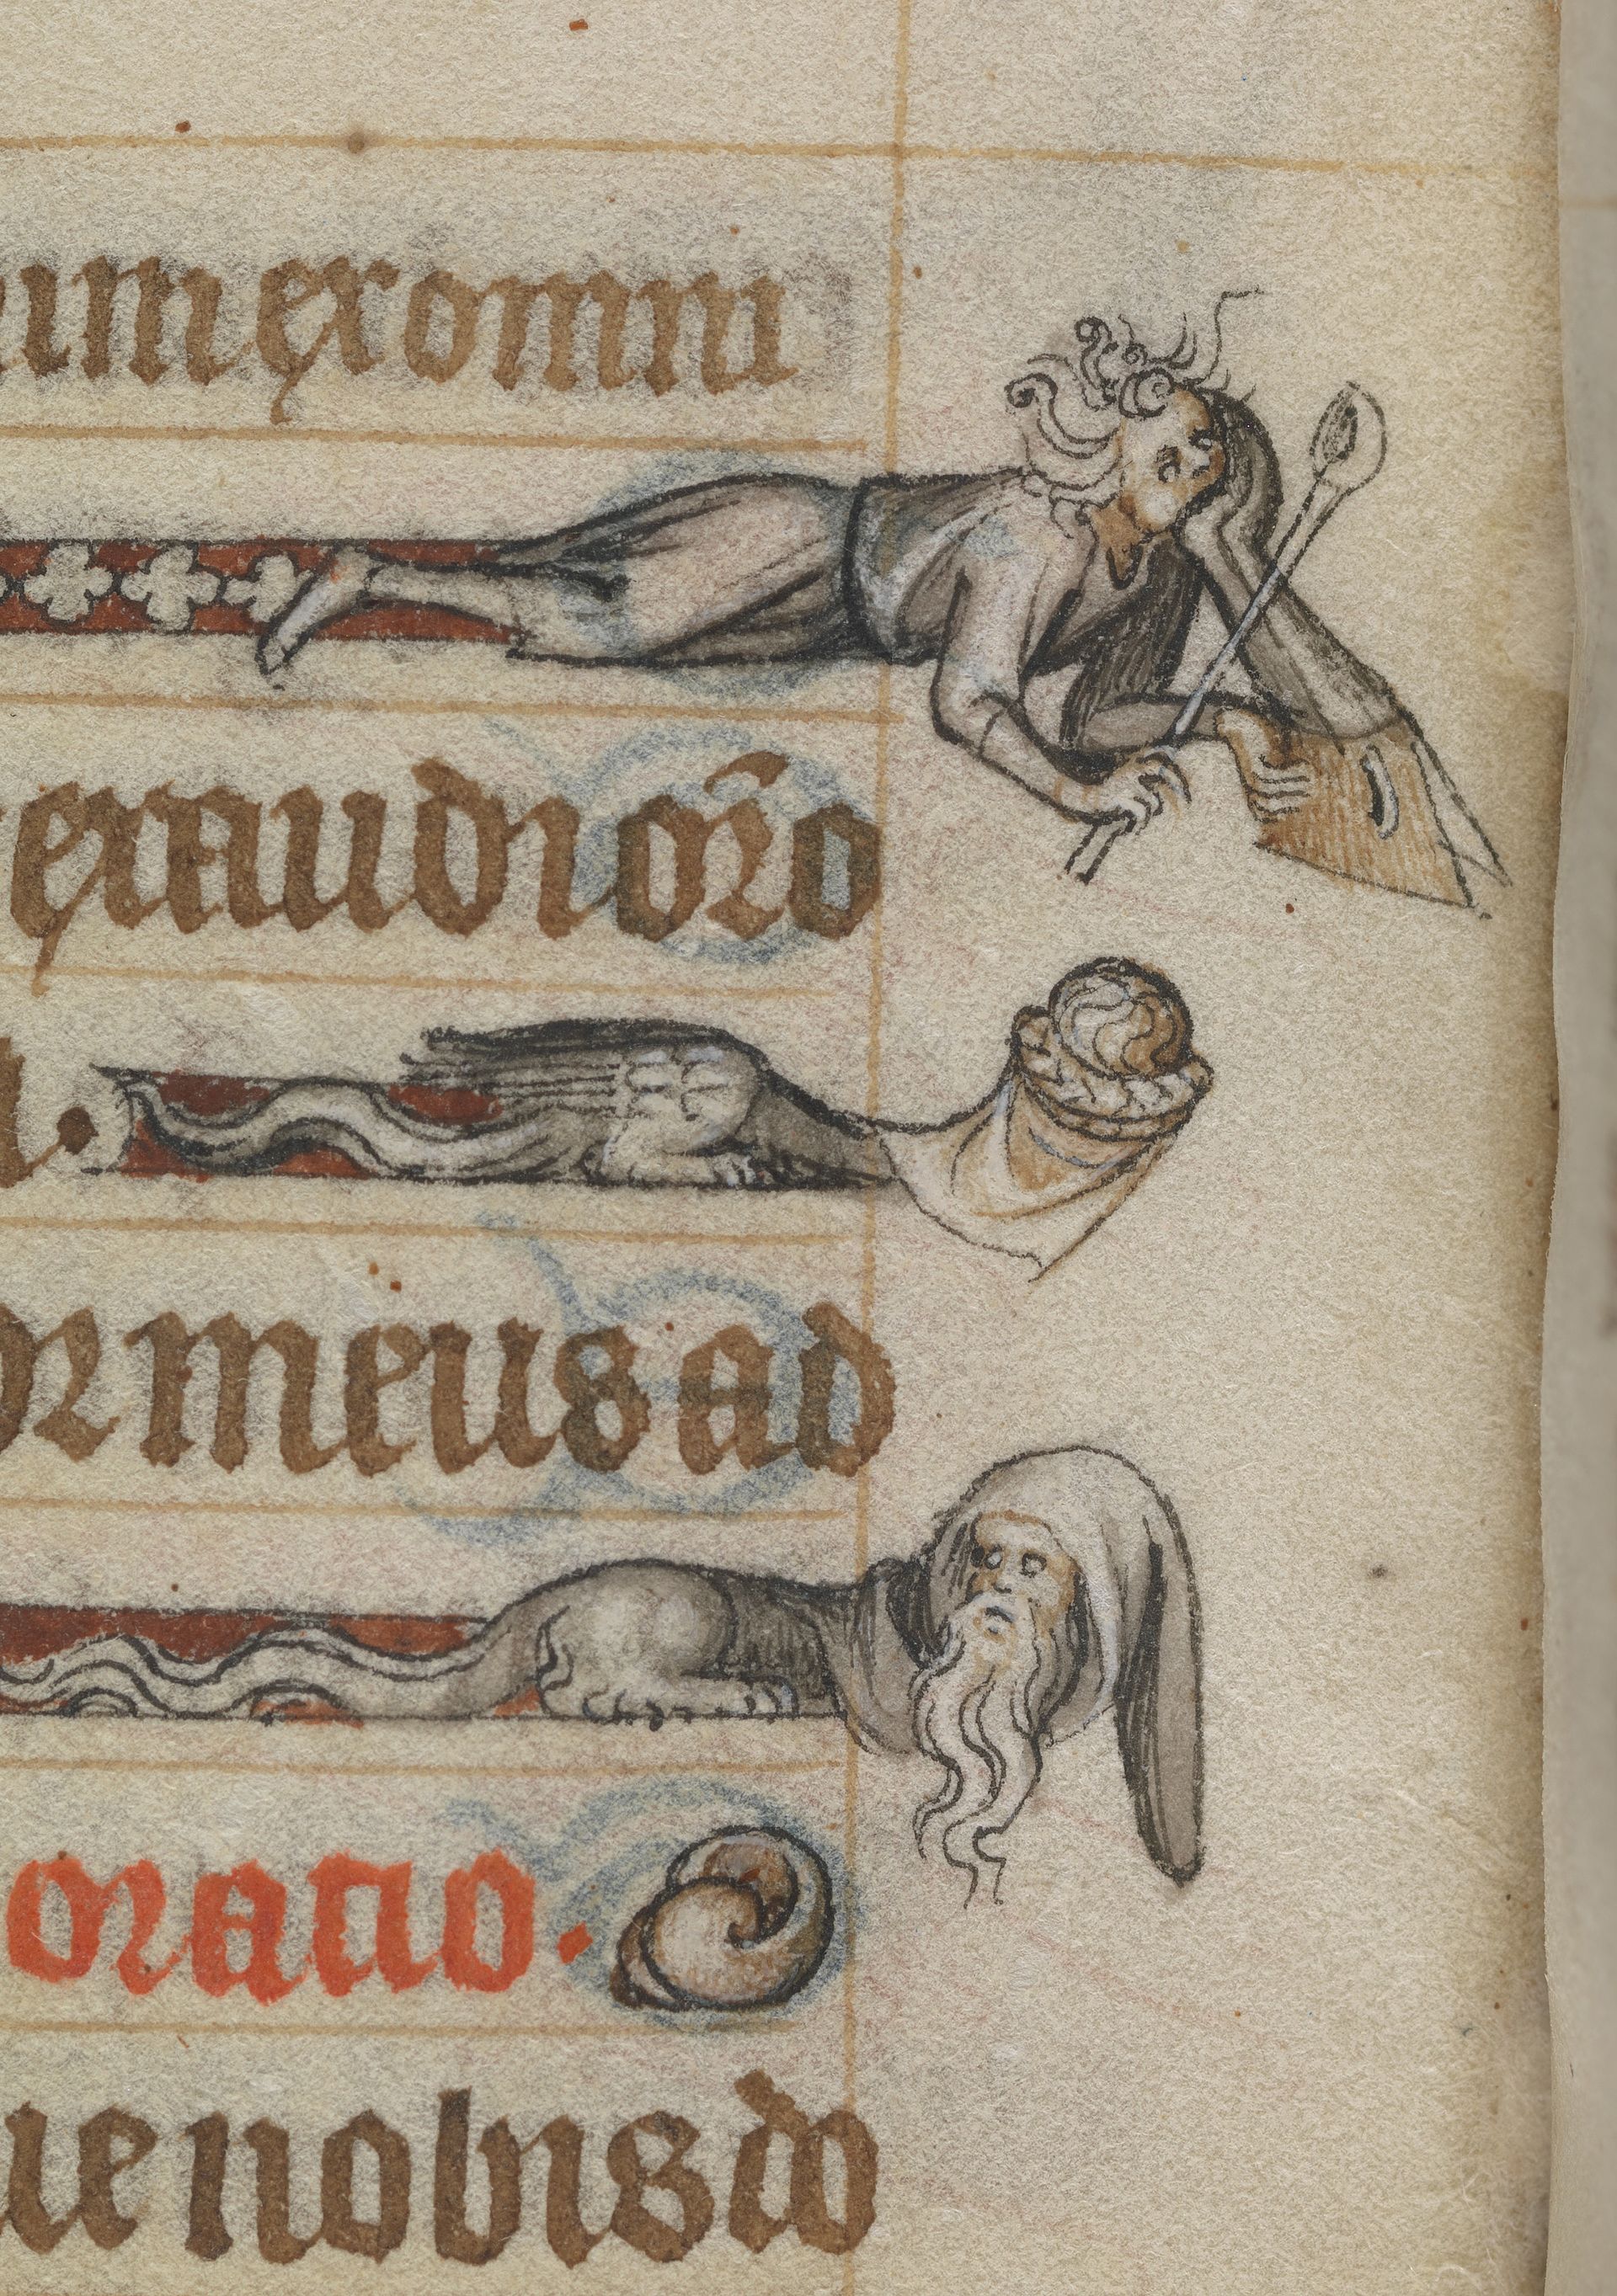 um ex omni
exaudi or̃o
or meus ad
oratio.
ue nobis do